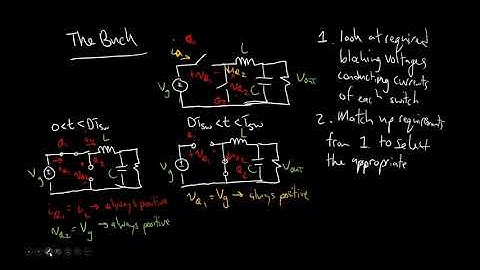 The Buck
L
C
Vout
Vg
1. look at required
blocking voltages
conducting currents
of each switch
2. Match up requirements
from 1 to select
the appropriate
0<t<DTsw
L
C
Vg
iQ1 = iL → always positive
vQ2 = Vg → always positive
DTsw<t<Tsw
L
C
Vg
Vout
vQ1 = Vg → always positive